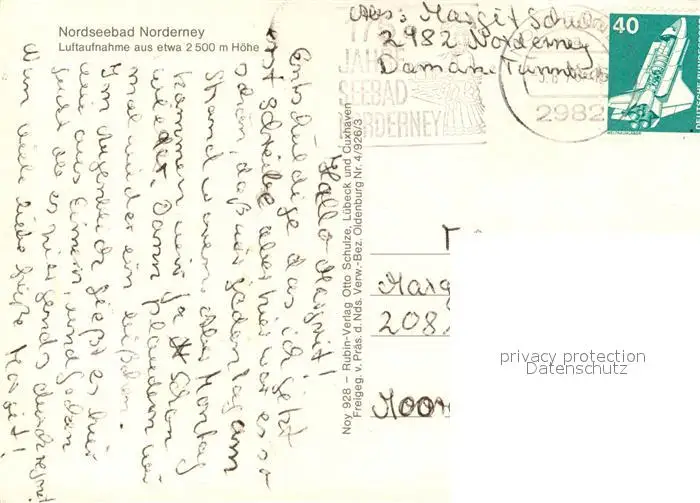 Nordseebad Norderney
Luftaufnahme aus etwa 2500 m Höhe
Abs: Margit Schu
2982 Norderney
JAHRE
SEEBAD
NORDERNEY
2982
40
DEUTSCHE BUNDESPOST
Hallo Margrit!
Entschuldige das ich jetzt
erst schreibe aber hier war es so
schön, daß wir jeden tag am
Strand waren. Aber Montag
kommen wir ja schon
wieder. Dann plaudern wir
mal wieder ein bißchen.
Im Augenblick gießt es hier
wie aus Eimern, und jeden
guckt ob es nirgends durchregnet
Nun viele liebe Grüße Margit!
Noy 928 – Rubin-Verlag Otto Schulze, Lübeck und Cuxhaven
Freigeg. v. Präs. d. Nds. Verw.-Bez. Oldenburg Nr. 4/926/3
Marg
208
Moor
privacy protection
Datenschutz